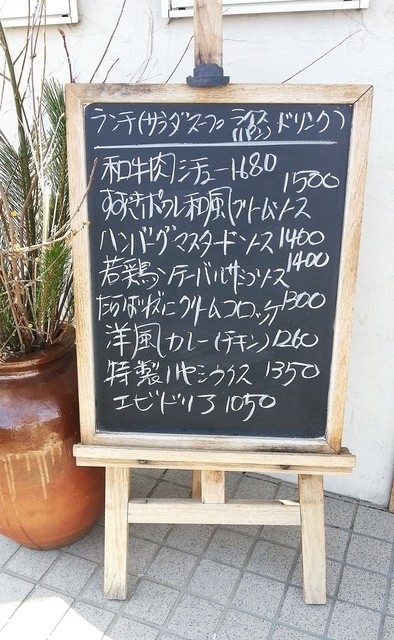 ランチ(サラダスープ ライス パン ドリンク)
和牛肉シチュー 1680
すずきポワレ和風クリームソース 1500
ハンバーグマスタードソース 1400
若鶏ソテーバルサミコソース 1400
たらばがにクリームコロッケ 1300
洋風カレー(チキン) 1260
特製ハヤシライス 1350
エビドリア 1050